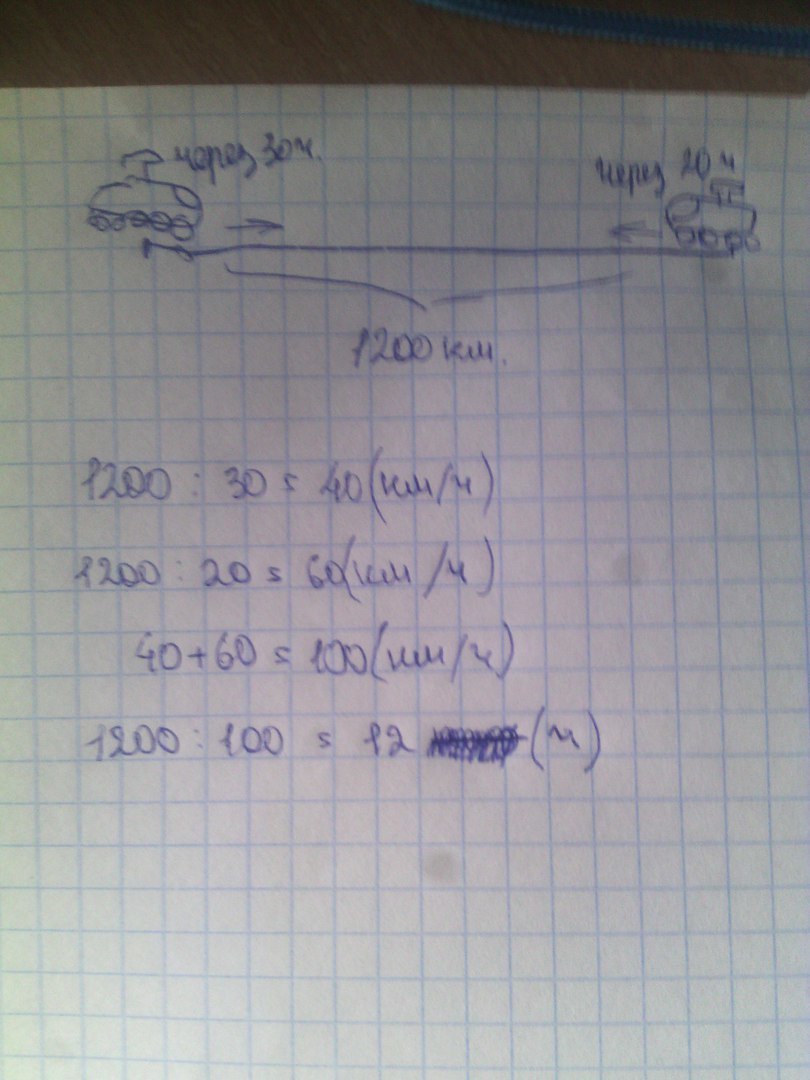 через 30 ч.
через 20 ч
1200 км.
1200 : 30 = 40 (км/ч)
1200 : 20 = 60 (км/ч)
40 + 60 = 100 (км/ч)
1200 : 100 = 12 (ч)